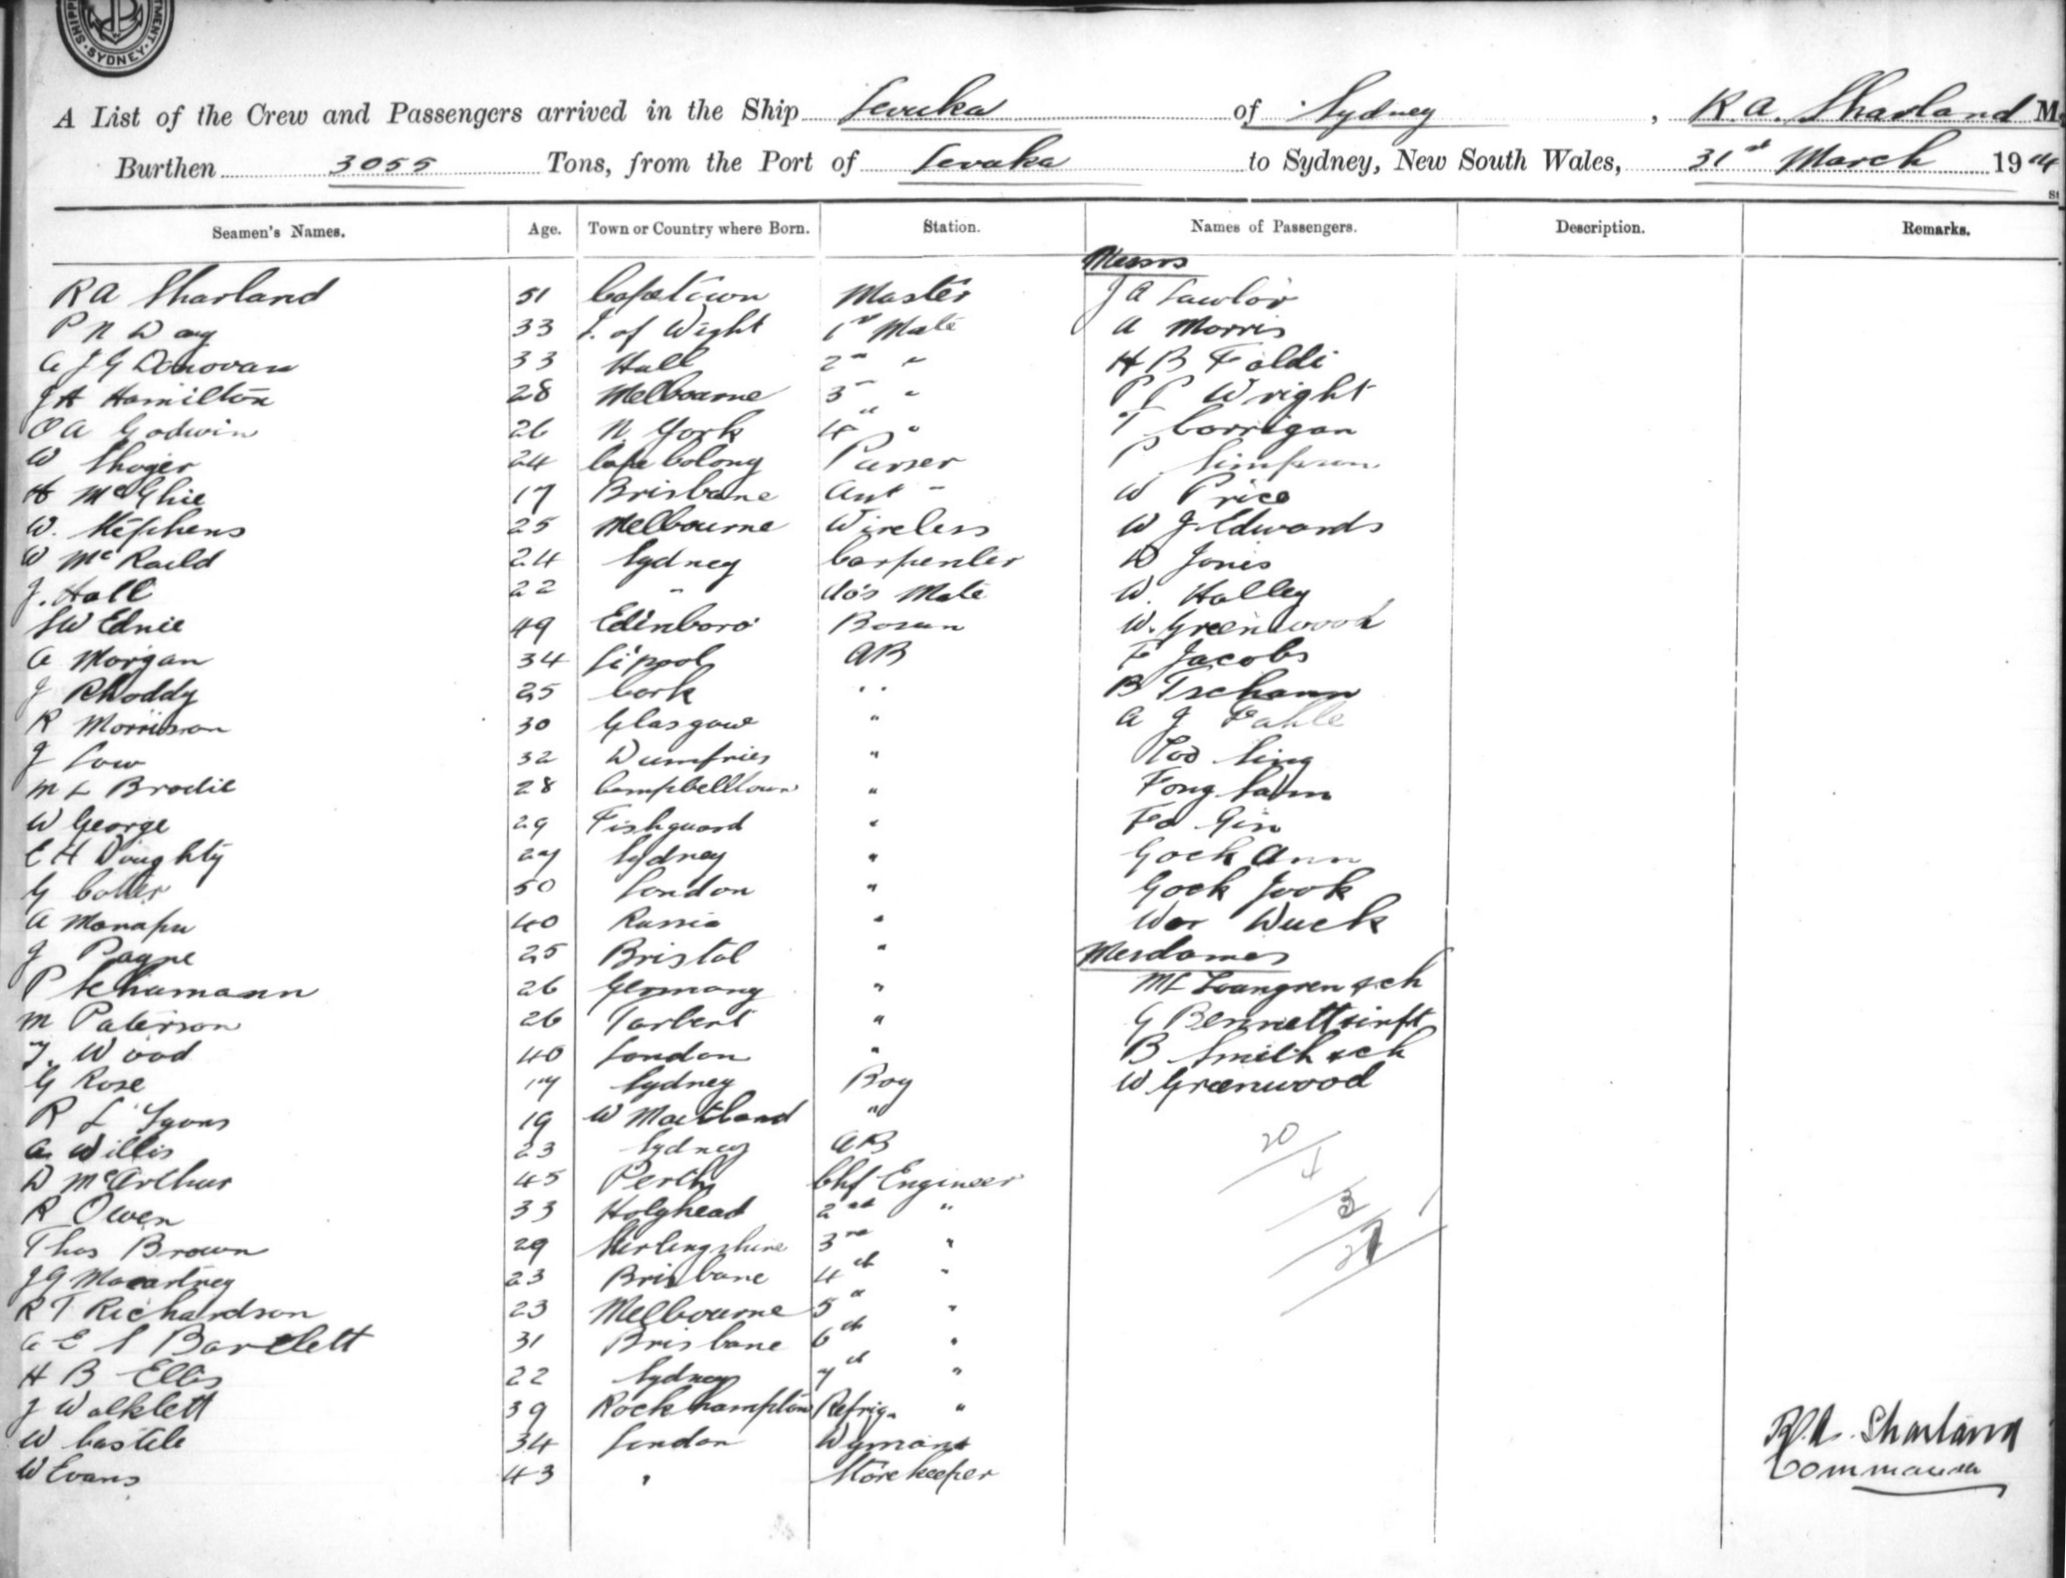 SHIPP TMENT. SYDNEY
A List of the Crew and Passengers arrived in the Ship Levuka of Sydney, R. A. Sharland M.
Burthen 3055 Tons, from the Port of Levuka to Sydney, New South Wales, 31st March 1914
Seamen's Names. Age. Town or Country where Born. Station. Names of Passengers. Description. Remarks.
Messrs
R A Sharland 51 Capetown Master J A Lawlor
P N Day 33 I. of Wight 1st Mate A Morris
A J G Donovan 33 Hull 2nd " H B Foldi
J A Hamilton 28 Melbourne 3rd " P P Wright
O A Godwin 26 N. York 4th " T Corrigan
W Shoger 24 Cape Colony Purser P Simpson
H McGhie 17 Brisbane Asst " W Price
W. Stephens 25 Melbourne Wireless W J Edwards
W McRaild 24 Sydney Carpenter D Jones
J. Hall 22 " do's Mate W. Holley
S W Ednie 49 Edinboro' Bosun W. Greenwood
A Morgan 34 L'pool AB F Jacobs
J Rhoddy 25 Cork " B Tschann
R Morrison 30 Glasgow " A J Fahle
J Low 32 Dumfries " Sing
M L Brodie 28 Campbelltown " Fong
W George 29 Fishguard " Fo Gin
E H Doughty 27 Sydney " Gock Ann
G Coller 50 London " Gock Jook
A Manapu 40 Russia " War Wuck
J Payne 25 Bristol " Mesdames
P Schumann 26 Germany " & ch
M Paterson 26 Tarbert " G Bennett & inft
T. Wood 40 London " B Smith & ch
G Rose 17 Sydney Boy W Greenwood
R L Lyons 19 W Maitland "
A. Willis 23 Sydney AB 20
D McArthur 45 Perth Chf Engineer 4
R Owen 33 Holyhead 2nd " 3
Thos Brown 29 Stirlingshire 3rd " 27
J G Macartney 23 Brisbane 4th "
R T Richardson 23 Melbourne 5" "
A E S Bartlett 31 Brisbane 6th "
H B Ellis 22 Sydney 7th "
J Walklett 39 Rockhampton Refrig. "
W Castile 34 London
W Evans 43 " Storekeeper
R.A. Sharland
Commander